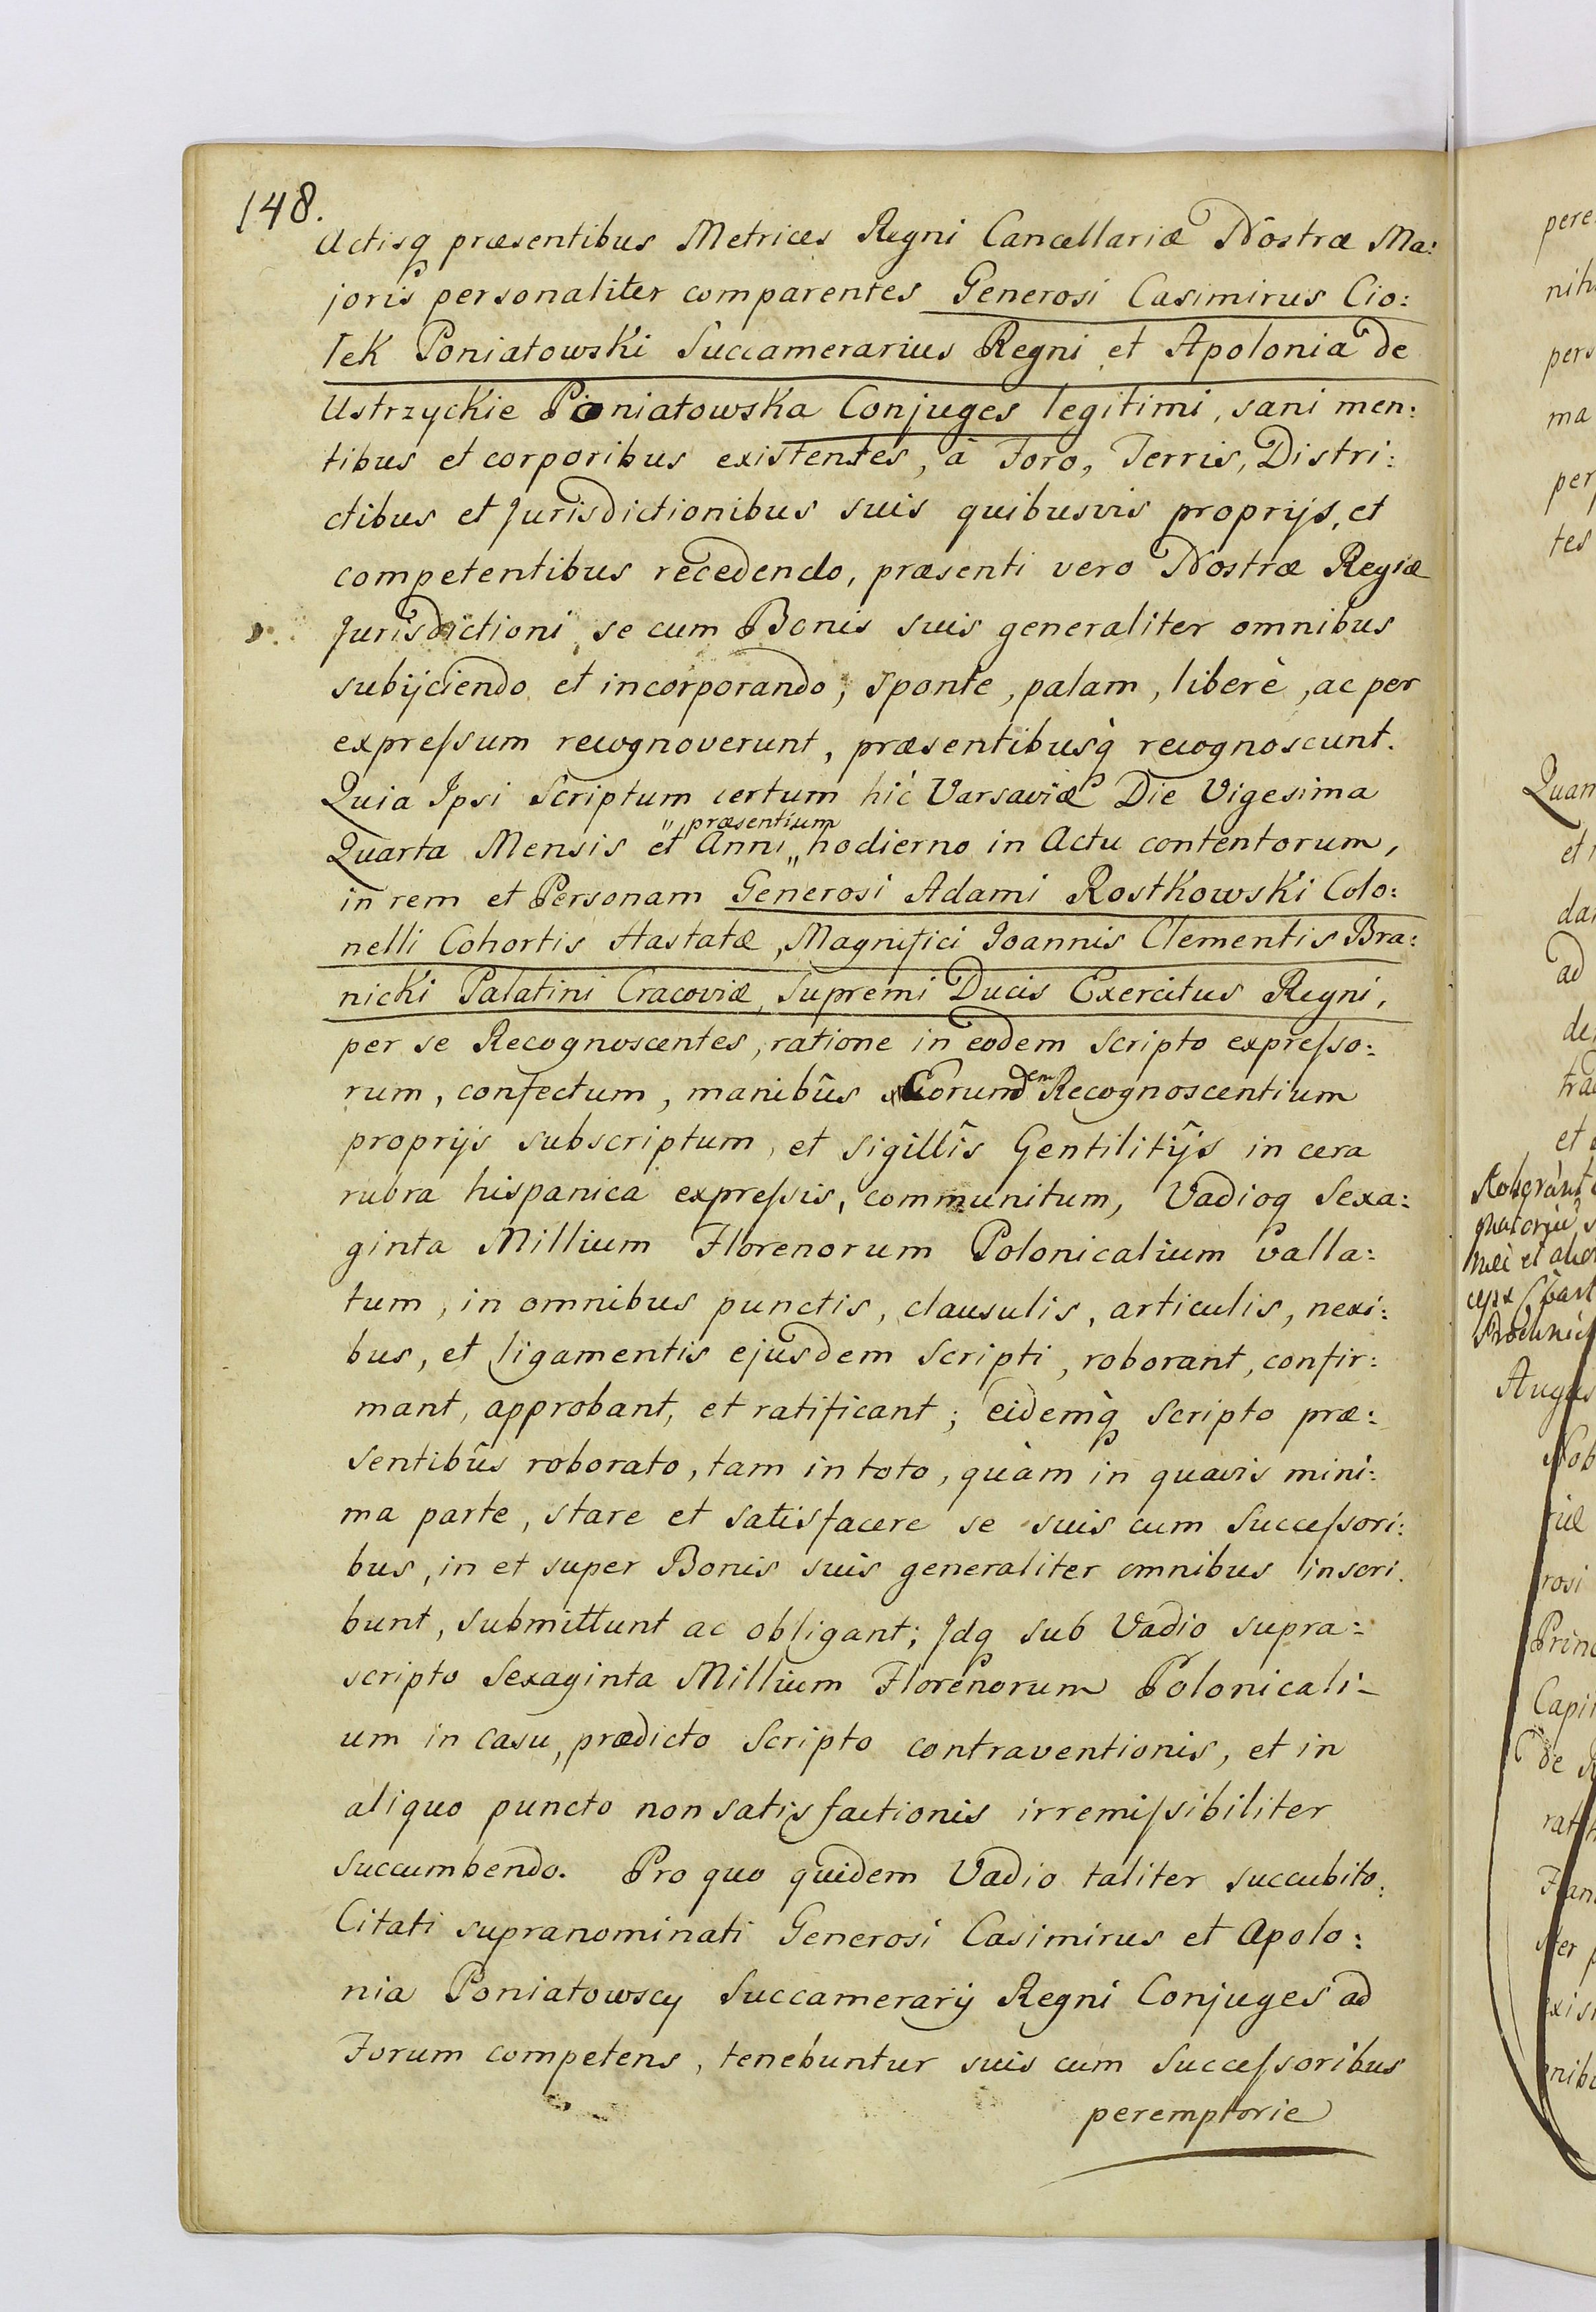 148.
Actisq præsentibus Metrices Regni Cancellariæ Nostræ Ma:
joris personaliter comparentes Generosi Casimirus Cio:
łek Poniatowski Succamerarius Regni et Apolonia de
Ustrzyckie Poniatowska Conjuges legitimi, sani men:
tibus et corporibus existentes, à Foro, Terris, Distri:
ctibus et Jurisdictionibus suis quibusvis proprijs, et
competentibus recedendo, præsenti vero Nostræ Regiæ
Jurisdictioni se cum Bonis suis generaliter omnibus
subijciendo et incorporando, sponte, palam, liberè, ac per
expreſsum recognoverunt, præsentibusq̀ recognoscunt.
Quia Ipsi Scriptum certum hic Varsaviæ Die Vigesima
Quarta Mensis et Anni " præsentium " hodierno in Actu contentorum,
in rem et Personam Generosi Adami Rostkowski Colo:
nelli Cohortis Hastatæ, Magnifici Joannis Clementis Bra:
nicki Palatini Cracoviæ, Supremi Ducis Exercitus Regni,
per se Recognoscentes, ratione in eodem Scripto expreſso:
rum, confectum, manibûs Eorundem Recognoscentium
proprijs subscriptum, et sigillîs Gentilitijs in cera
rubra hispanica expreſsis, communitum, Vadioq Sexa:
ginta Millium Florenorum Polonicalium valla:
tum, in omnibus punctis, clausulis, articulis, nexi:
bus, et ligamentis ejusdem Scripti, roborant, confir:
mant, approbant, et ratificant; eidemq̀ Scripto præ:
sentibûs roborato, tam in toto, quàm in quavis mini:
ma parte, stare et satisfacere se suis cum Succeſsori:
bus, in et super Bonis suis generaliter omnibus inscri.
bunt, submittunt ac obligant; Jdq sub Vadio supra:
scripto Sexaginta Millium Florenorum Polonicali-
um in casu, prædicto Scripto contraventionis, et in
aliquo puncto non satisfactionis irremiſsibiliter
succumbendo. Pro quo quidem Vadio taliter succubito:
Citati supranominati Generosi Casimirus et Apolo:
nia Poniatowscy Succamerarij Regni Conjuges ad
Forum competens, tenebuntur suis cum Succeſsoribus
peremptorie